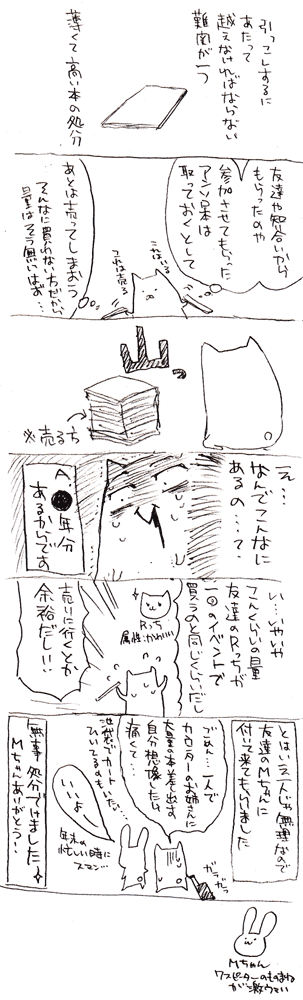 引っこしするに
あたって
越えなければならない
難関が一つ
薄くて高い本の処分
友達や知合いから
もらったのや
参加させてもらった
アンソロ本は
取っておくとして
こっちいる
これは売る
あとは売ってしまおう
そんなに買わない方だから
量はそう無いはず…
山っ
※売る方
え…
なんでこんなに
あるの…？
A.●年分
あるからです
い…いやいや
こんくらいの量
友達のRっちが
一回のイベントで
買うのと同じくらいだし
Rっち
属性：かわいい
売りに行くとか
余裕だし!!
とはいえ一人じゃ無理なので
友達のMちゃんに
付いて来てもらいました
ごめん…一人で
カウンターのお姉さんに
大量の本差し出す
自分想像したら
痛くて…
池袋でカート
ひいてるのもいた…
いいよー
年末の
忙しい時に
スマン…
ガラガラ
無事処分できました
Mちゃんありがとう…
Mちゃん
ワスピーターのものまね
が激ウマい